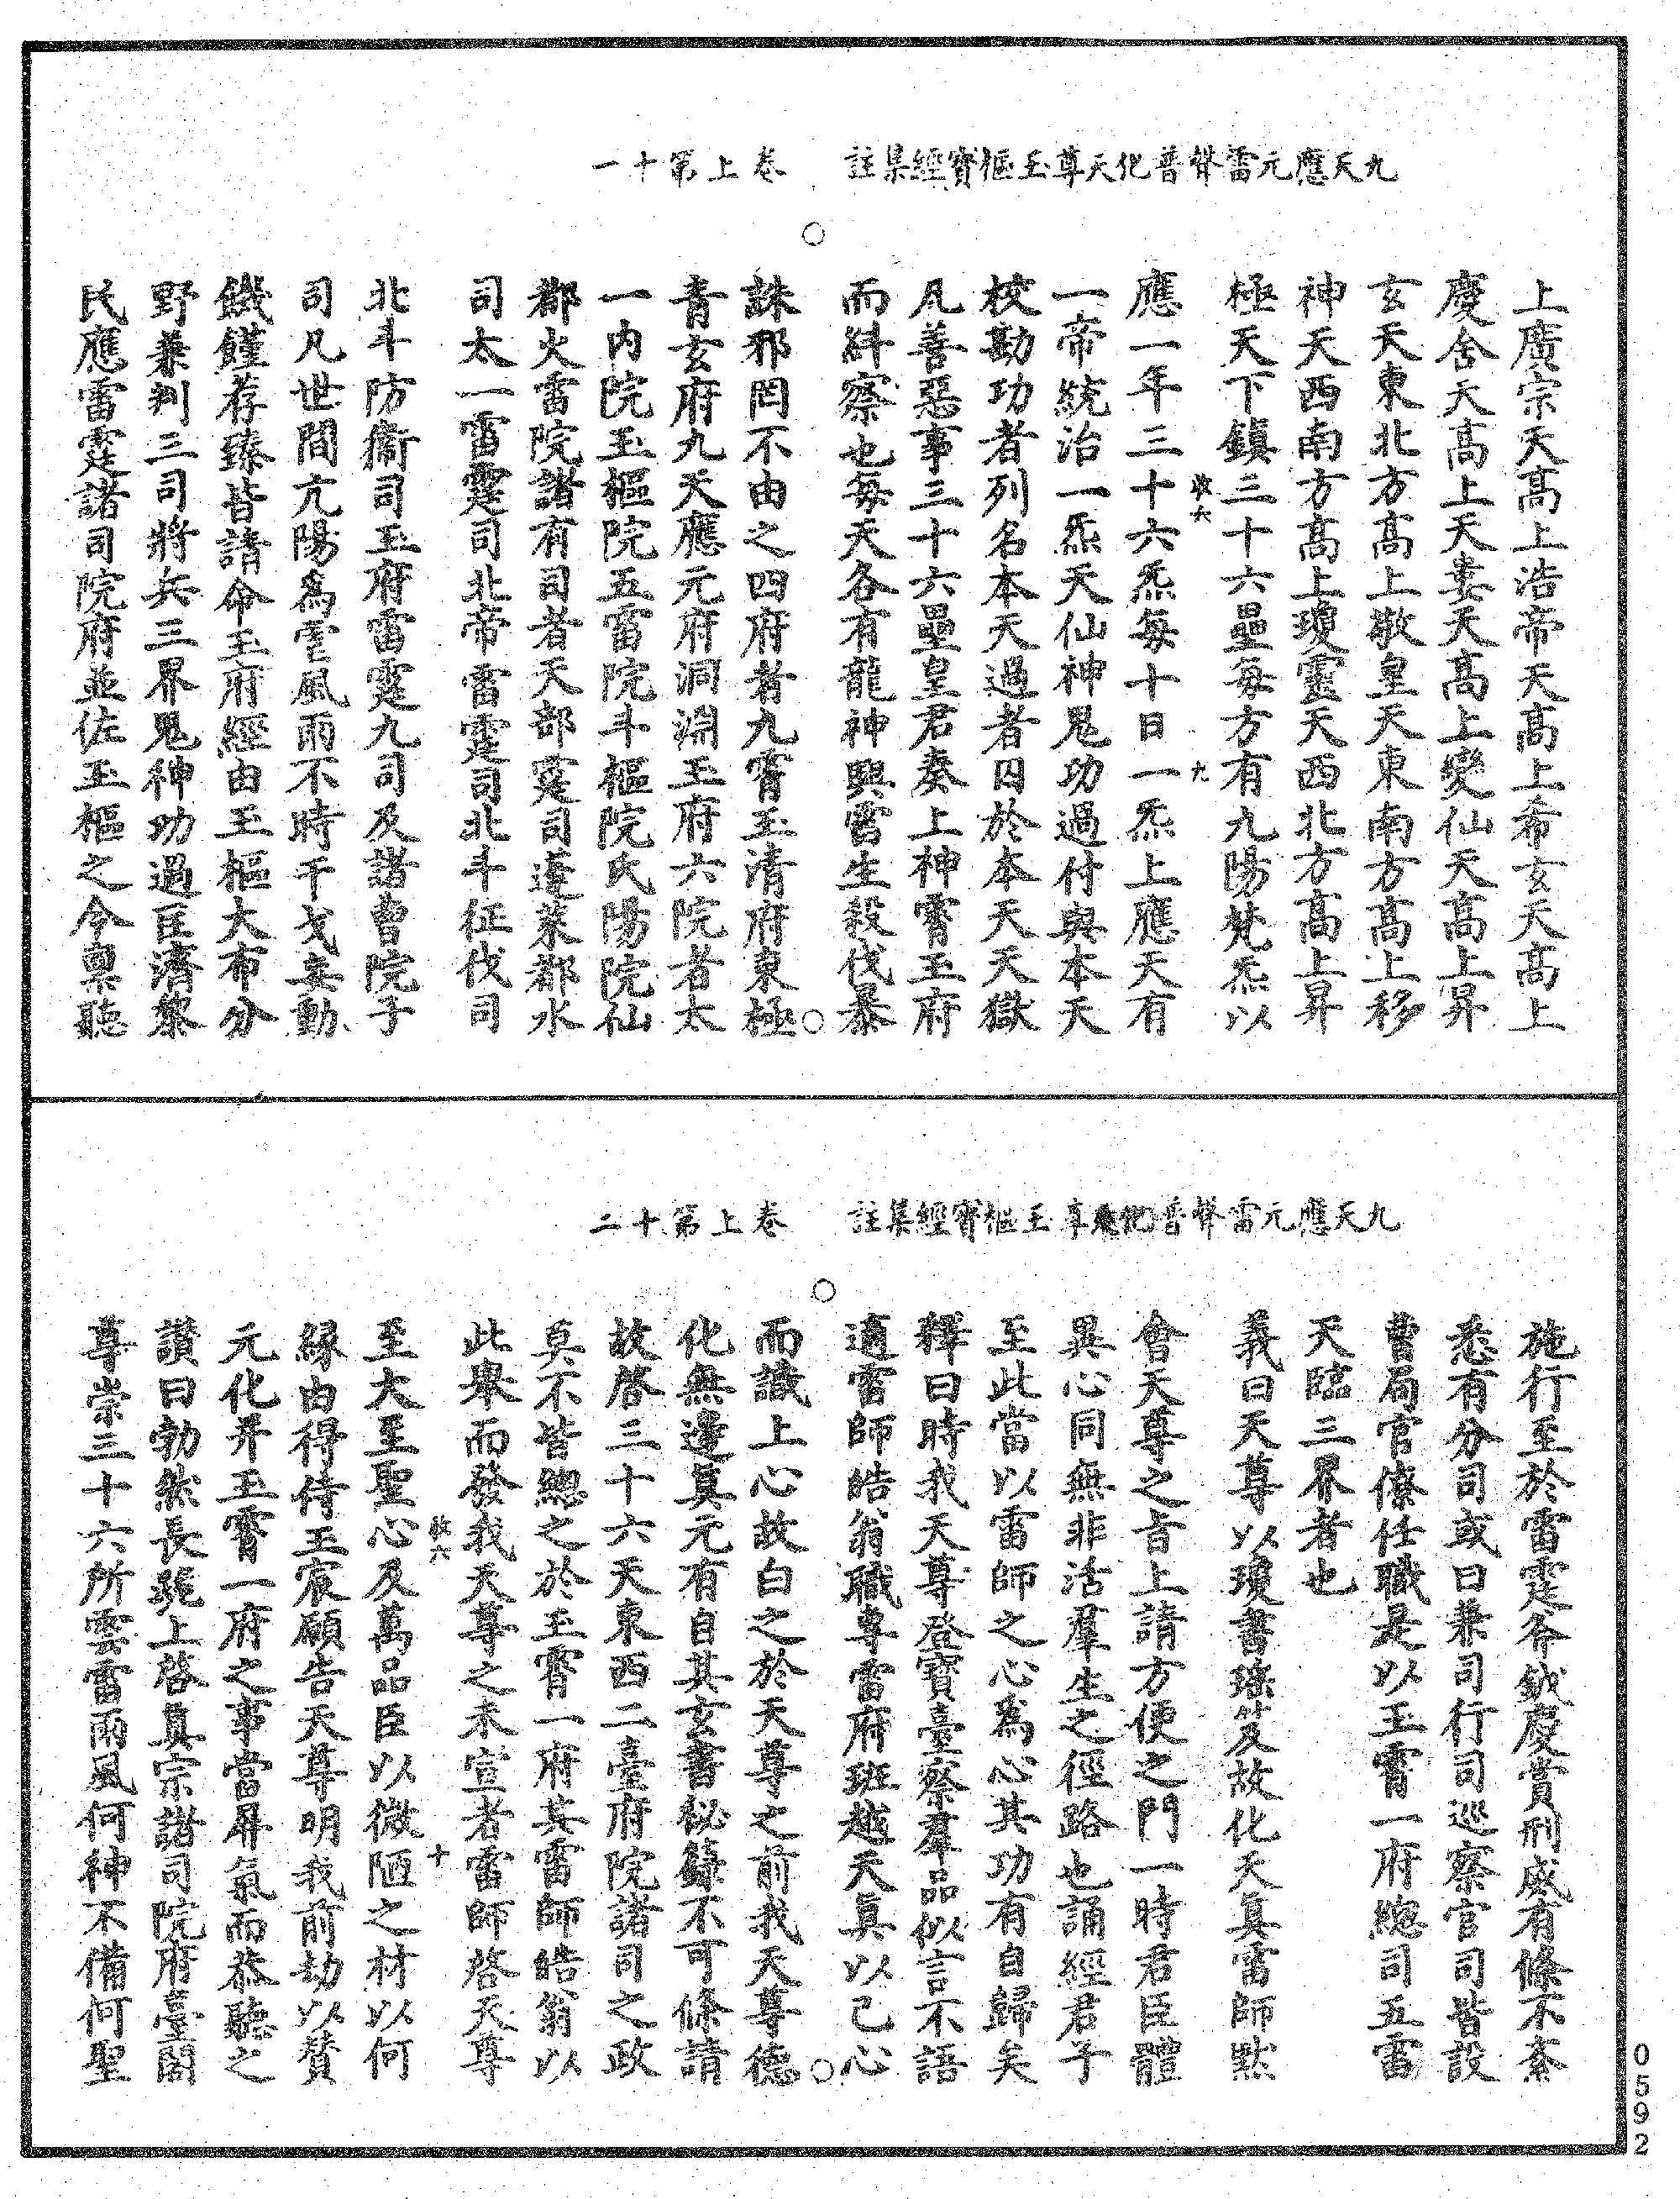 九天應元雷聲普化天尊玉樞寶經集註　卷上第十一
上廣宗天高上浩帝天高上希玄天高上
慶舍天高上天婁天高上變仙天高上昇
玄天東北方高上敬皇天東南方高上移
神天西南方高上瓊靈天西北方高上昇
極天下鎮三十六壘每方有九陽梵炁以
應一年三十六炁每十日一炁上應天有
一帝統治一炁天仙神鬼功過付與本天
校勘功者列名本天過者囚於本天天獄
凡善惡事三十六壘皇君奏上神霄玉府
而糾察也每天各有龍神興雷生殺伐暴
誅邪罔不由之四府者九霄玉清府東極
青玄府九天應元府洞淵玉府六院者太
一內院玉樞院五雷院斗樞院氏陽院仙
都火雷院諸有司者天部霆司蓬萊都水
司太一雷霆司北帝雷霆司北斗征伐司
北斗防衛司玉府雷霆九司及諸曹院子
司凡世間亢陽為雩風雨不時干戈妄動
饑饉荐臻皆請命玉府經由玉樞大布分
野兼判三司將兵三界鬼神功過匡濟黎
民應雷霆諸司院府並佐玉樞之令稟聽
敬六
九
九天應元雷聲普化天尊玉樞寶經集註　卷上第十二
施行至於雷霆斧鉞慶賞刑威有條不紊
悉有分司或曰兼司行司巡察官司皆設
曹局官僚任職是以玉霄一府總司五雷
天臨三界者也
義曰天尊以瓊書璨笈故化天真雷師默
會天尊之旨上請方便之門一時君臣體
異心同無非活羣生之徑路也誦經君子
至此當以雷師之心為心其功有自歸矣
釋曰時我天尊登寶臺察羣品似言不語
適雷師皓翁職專雷府班越天真以己心
而識上心故白之於天尊之前我天尊德
化無邊真元有自其玄書秘籙不可條請
故啓三十六天東西二臺府院諸司之政
莫不皆總之於玉霄一府其雷師皓翁以
此舉而發我天尊之未宣者雷師啓天尊
至大至聖心及萬品臣以微陋之材以何
緣由得侍玉宸願告天尊明我前劫以贊
元化并玉霄一府之事當屏氣而恭聽之
讚曰勃然長跪上啓真宗諸司院府臺閣
尊崇三十六所雲雷雨風何神不備何聖
敬六
十
0592